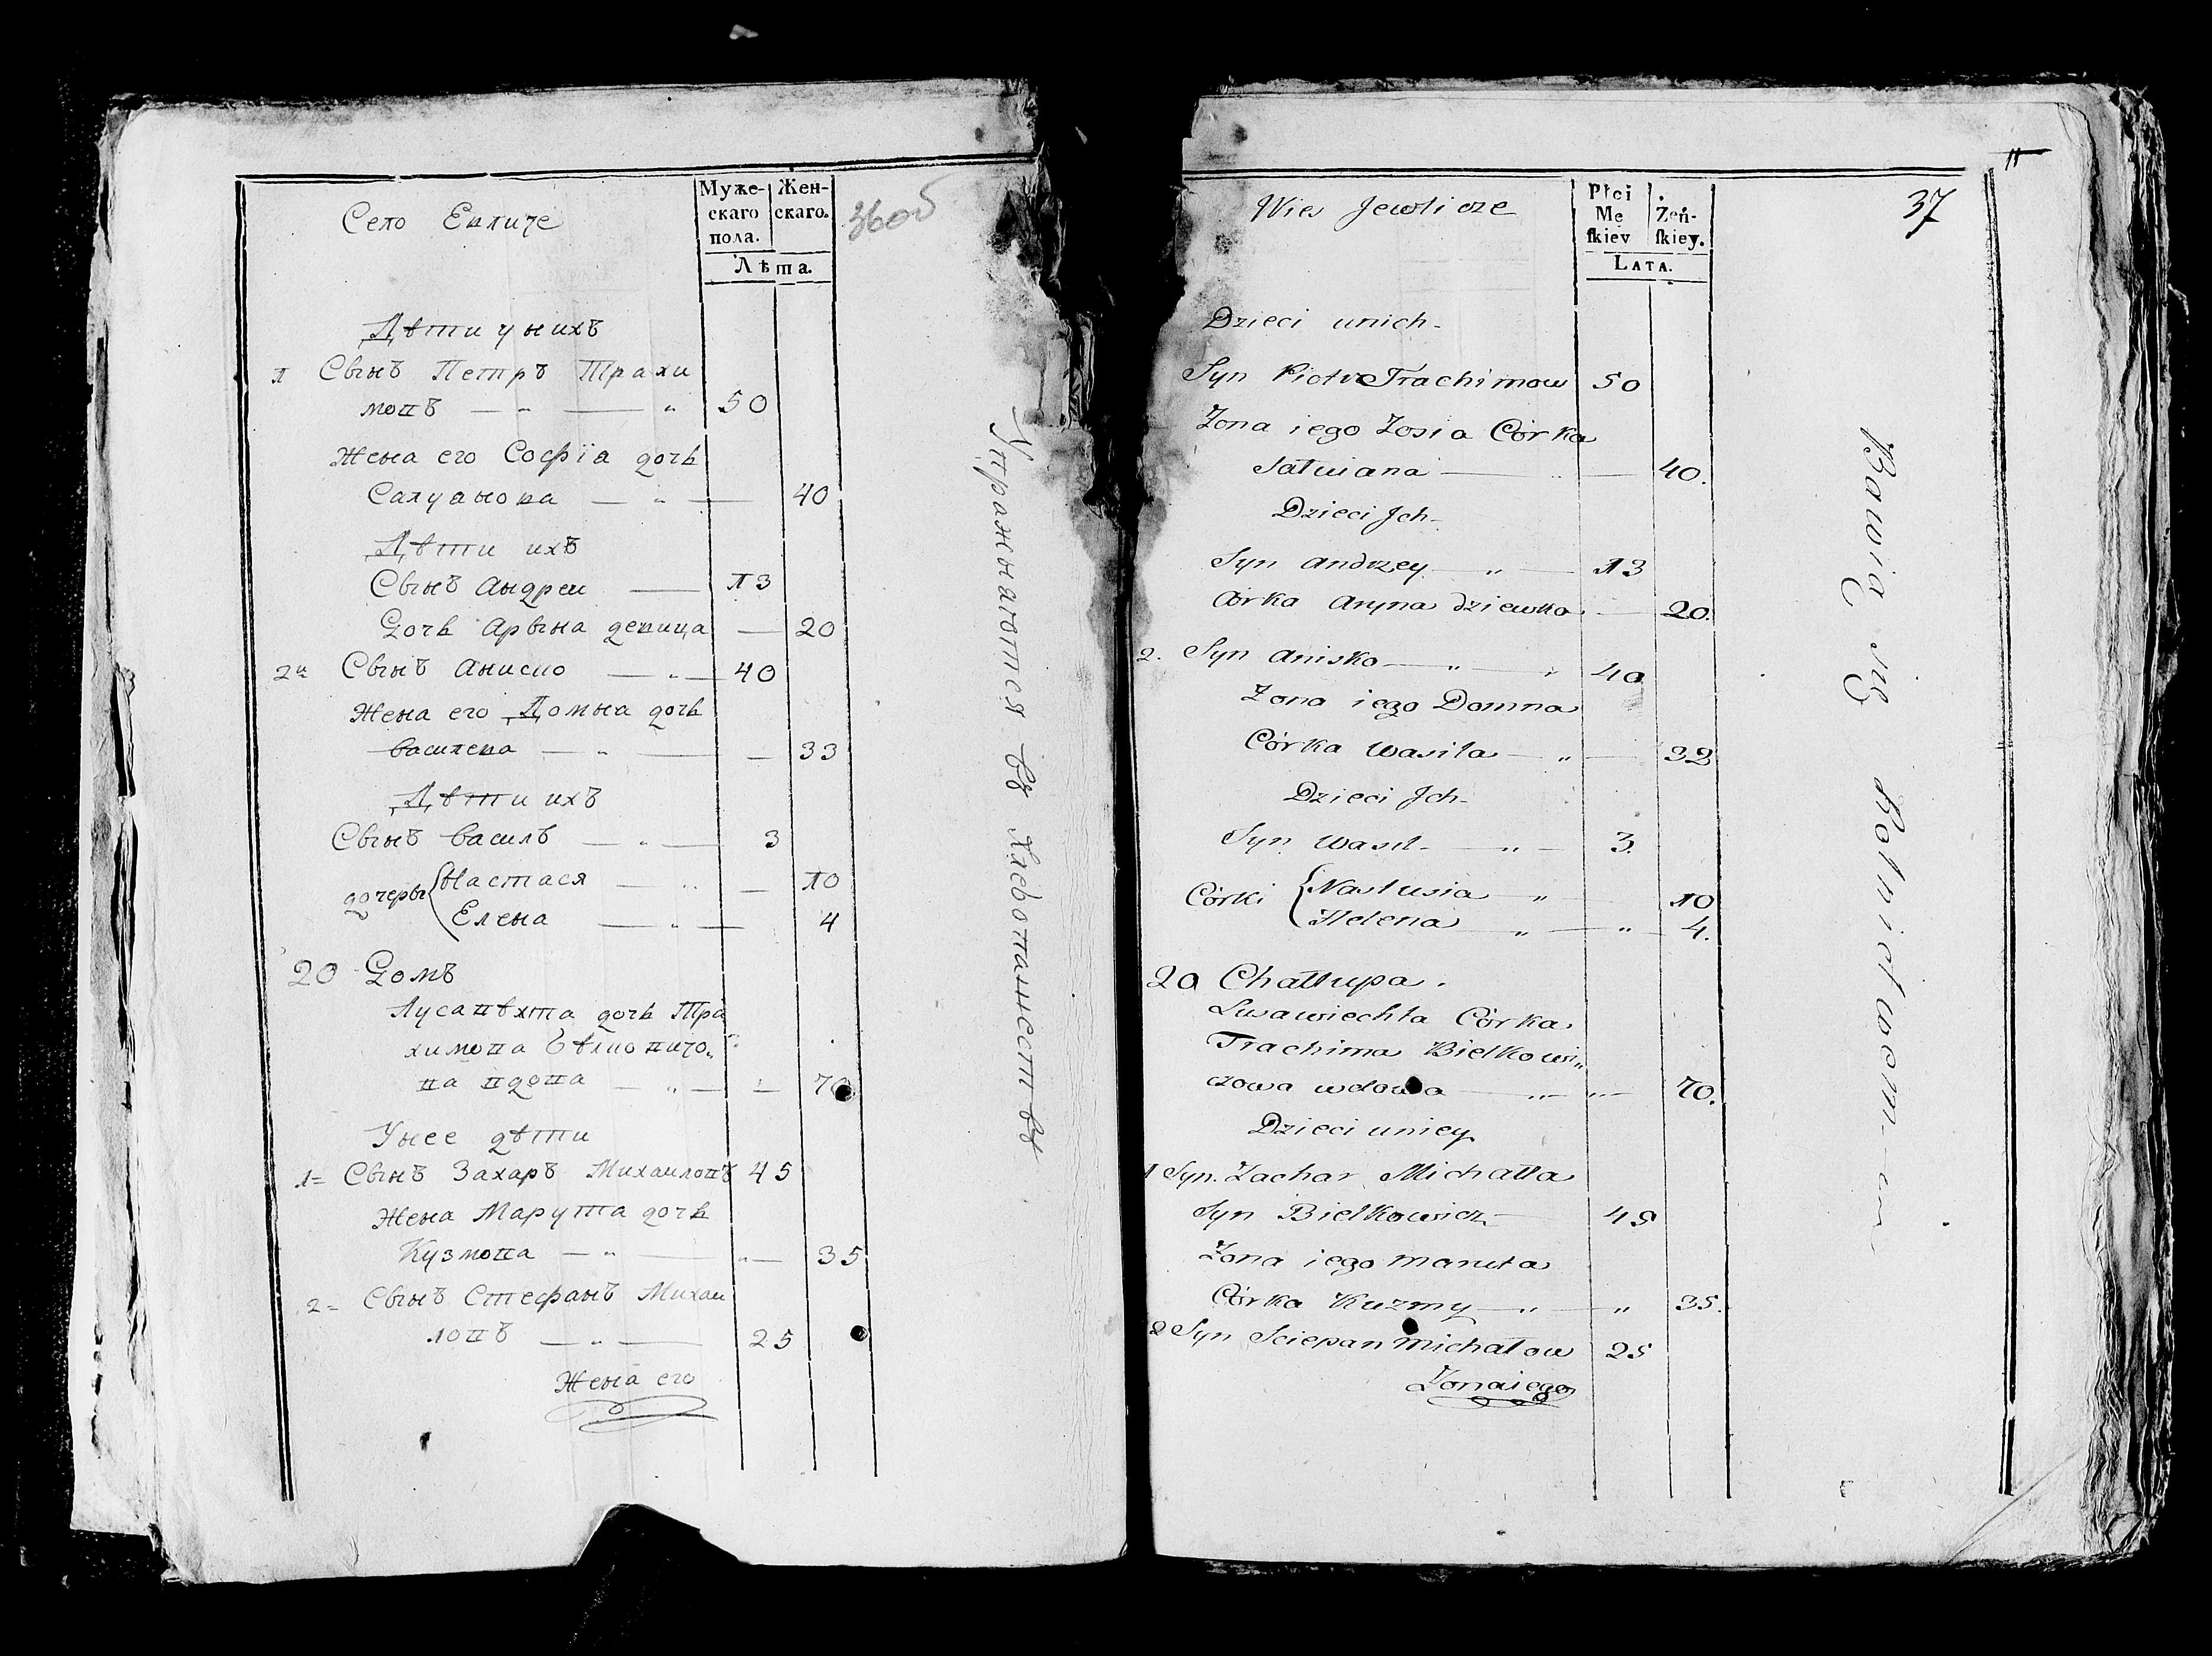 Село Евличе
Муже-
скаго
пола.
Жен-
скаго.
Лѣта.
36об
Дѣти у нихъ
1 Сынъ Петръ Трахи
мовъ — „ — „ 50
Жена его Софїа дочь
Салуанова — „ — 40
Дѣти ихъ
Сынъ Андреи — 13
Дочь Арына девица — 20
2й Сынъ Аниско — „ — 40
Жена его Домна дочь
Василева — „ — — 33
Дѣти ихъ
Сынъ Василъ — „ — 3
дочеры { Настася — „ — 10
Елена — „ — 4
20 Домъ
Лусавѣхта дочь Тра
химова Бѣлковичо„
ва вдова — „ — — 70
У нее дѣти
1= Сынъ Захаръ Михаиловъ 45
Жена Марута дочь
Кузмова — „ — „ — 35
2= Сынъ Стефанъ Михаи
ловъ — „ — 25
Жена его
Упражънаются въ хлебопашествѣ
Wies Jewlicze
Płci
Mę
ſkiey
Żeń-
ſkiey.
LATA.
37
Dzieci unich-
Syn Piotr Trachimow 50
Zona iego Zosia Córka
Sałwiana — „ — 40.
Dzieci Jch-
Syn Andrzey — „ — 13
Córka Aryna dziewka — 20.
2. Syn Anisko — „ — „ 40
Zona iego Domna
Córka Wasila — „ — 33
Dzieci Jch-
Syn Wasil- — „ — 3.
Córki { Nastusia — „ — 10
Helena — „ — „ — 4.
20 Chałłupa.
Lusawiechta Córka
Trachima Bielkowi„
czowa wdowa — „ — „ — 70.
Dzieci uniey
1 Syn. Zachar Michałła
Syn Bielkowicz — 45
Zona iego Maruta
Córka Kuzmy — „ — „ 35.
2 Syn Sciepan Michałow 25
Zona iego
Bawią się Rolnictwem